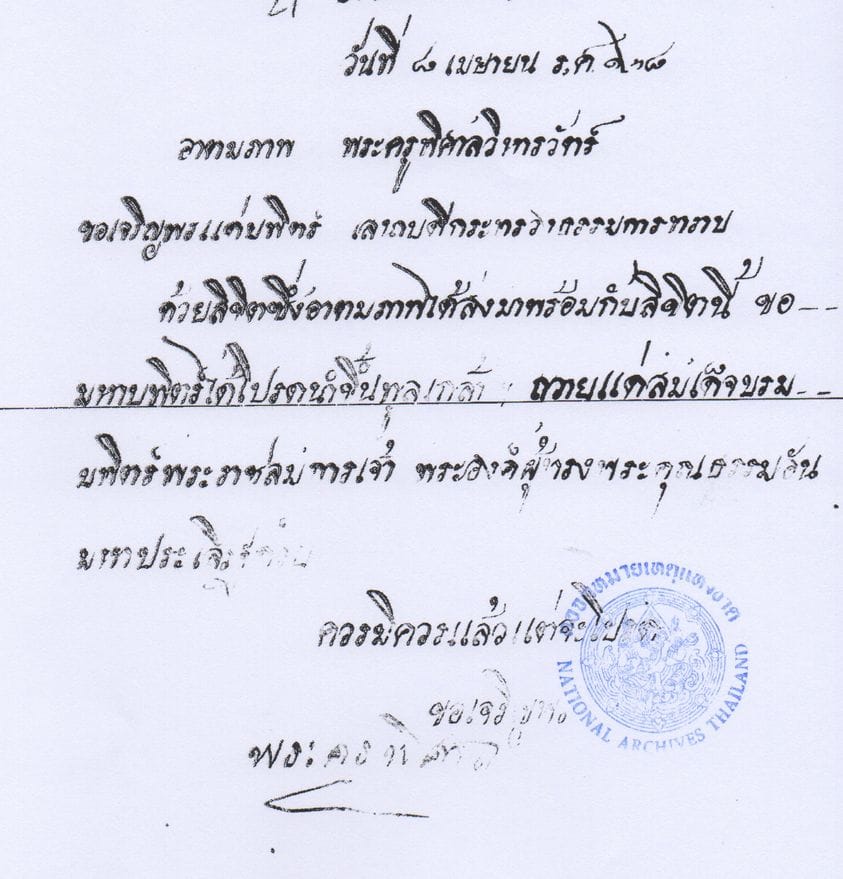 วันที่ ๘ เมษายน ร,ศ, ๑๒๘
อาตมภาพ พระครูพิศาลวิหารวัตร์
ขอเจริญพรแด่บพิตร์ เสนาบดีกระทรวงธรรมการทราบ
ด้วยลิขิตซึ่งอาตมภาพได้ส่งมาพร้อมกับลิขิตนี้ ขอ
มหาบพิตร์ได้โปรดนำขึ้นทูลเกล้า ฯ ถวายแด่สมเด็จบรม
บพิตร์พระราชสมภารเจ้า พระองค์ผู้ทรงพระคุณธรรมอัน
มหาประเสริฐด้วย
ควรมิควรแล้วแต่จะโปรด
ขอเจริญพร
พระครูพิศาล
หอจดหมายเหตุแห่งชาติ
NATIONAL ARCHIVES THAILAND